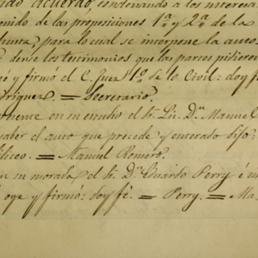 acuerdo, condenando a los interesa
enido de las proposiciones 1ª y 2ª de la
para lo cual se interpone la auto
dense los testimonios que las partes pidieren
y firmó el C. Juez 1º de lo Civil: doy f
Secretario.
en su estudio el Sr. Lic. Dn. Manuel
saber el auto que precede y enterado dijo:
lico. = Manuel Romero.
en su morada el Sr. Dn. Eduardo Perry é im
oye y firmó: doy fé. = Perry. = Ma